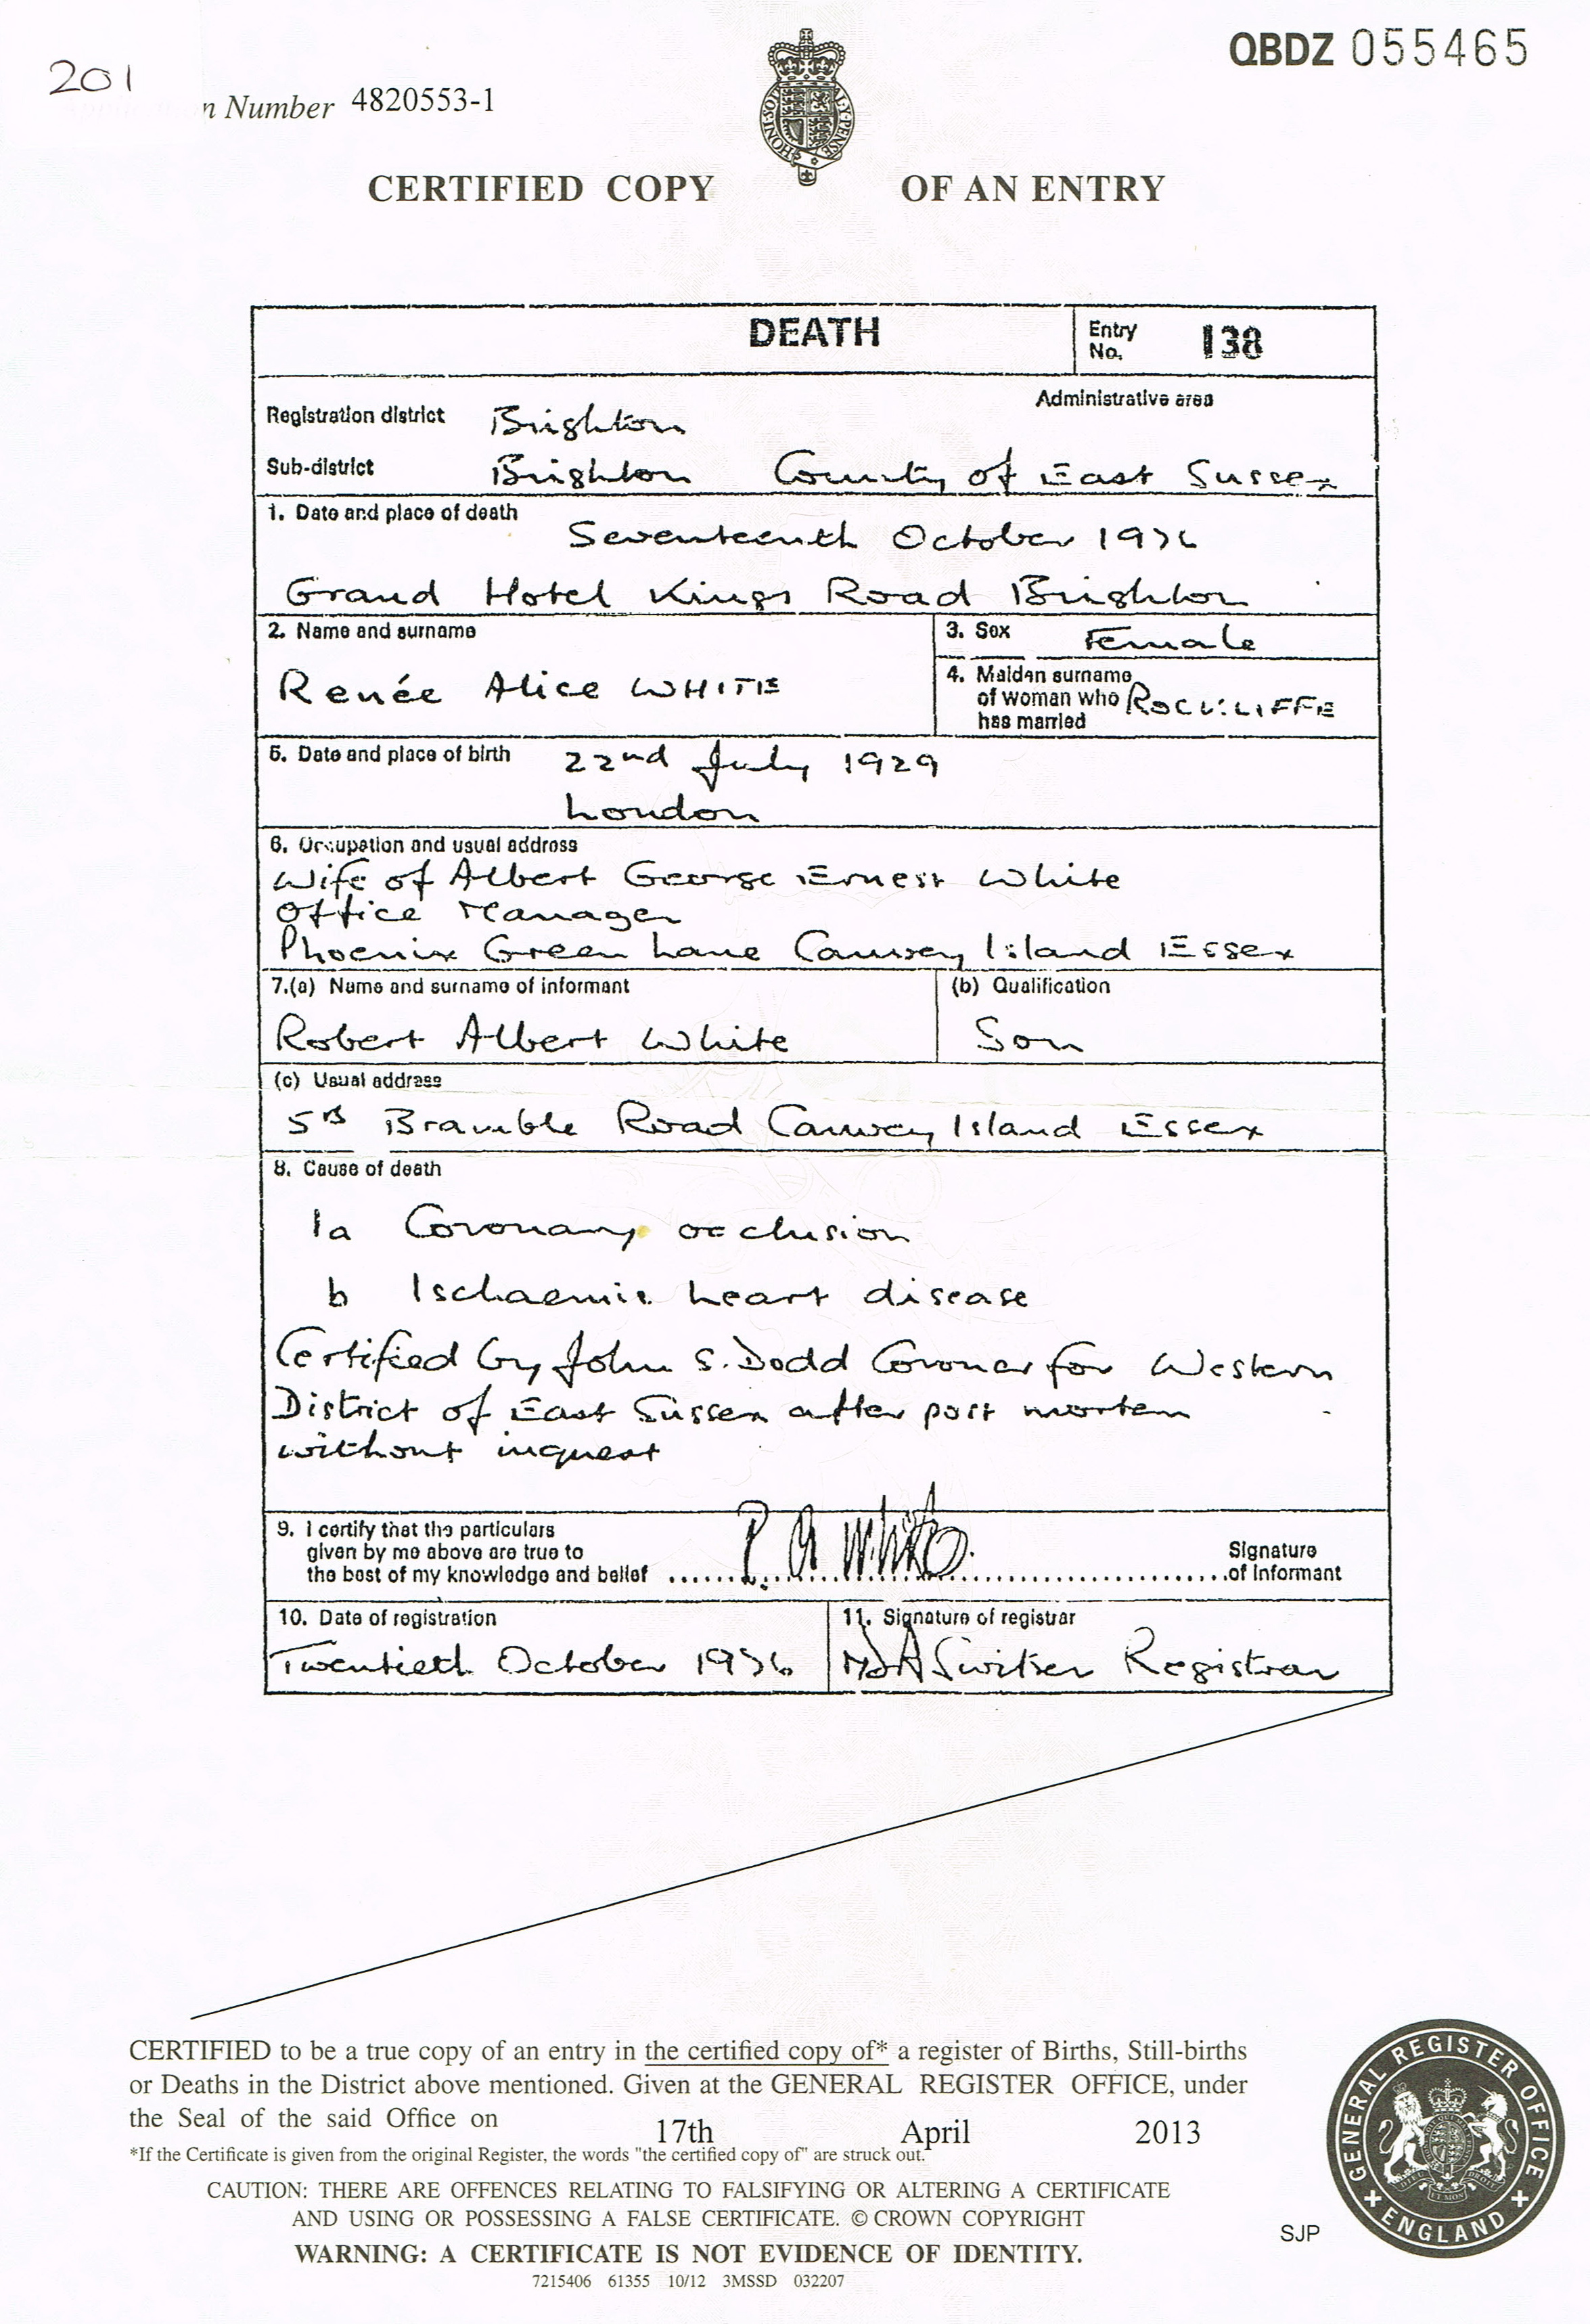 QBDZ 055465
201
n Number 4820553-1
HONI·SOI AL·Y·PENSE
CERTIFIED COPY OF AN ENTRY
DEATH Entry No. 138
Administrative area
Registration district Brighton
Sub-district Brighton County of East Sussex
1. Date and place of death
Seventeenth October 1976
Grand Hotel Kings Road Brighton
2. Name and surname
Renée Alice WHITE
3. Sex Female
4. Maiden surname
of woman who
has married
ROCKLIFFE
5. Date and place of birth 22nd July 1929
London
6. Occupation and usual address
Wife of Albert George Ernest White
Office Manager
Phoenix Green Lane Canvey Island Essex
7.(a) Name and surname of informant
Robert Albert White
(b) Qualification
Son
(c) Usual address
5B Bramble Road Canvey Island Essex
8. Cause of death
1a Coronary occlusion
b Ischaemic heart disease
Certified by John S. Dodd Coroner for Western
District of East Sussex after post mortem
without inquest
9. I certify that the particulars
given by me above are true to
the best of my knowledge and belief
R. A White.
Signature
of informant
10. Date of registration
Twentieth October 1976
11. Signature of registrar
Registrar
CERTIFIED to be a true copy of an entry in the certified copy of* a register of Births, Still-births
or Deaths in the District above mentioned. Given at the GENERAL REGISTER OFFICE, under
the Seal of the said Office on 17th April 2013
*If the Certificate is given from the original Register, the words "the certified copy of" are struck out.
CAUTION: THERE ARE OFFENCES RELATING TO FALSIFYING OR ALTERING A CERTIFICATE
AND USING OR POSSESSING A FALSE CERTIFICATE. © CROWN COPYRIGHT
WARNING: A CERTIFICATE IS NOT EVIDENCE OF IDENTITY.
7215406 61355 10/12 3MSSD 032207
SJP
GENERAL REGISTER OFFICE
ENGLAND